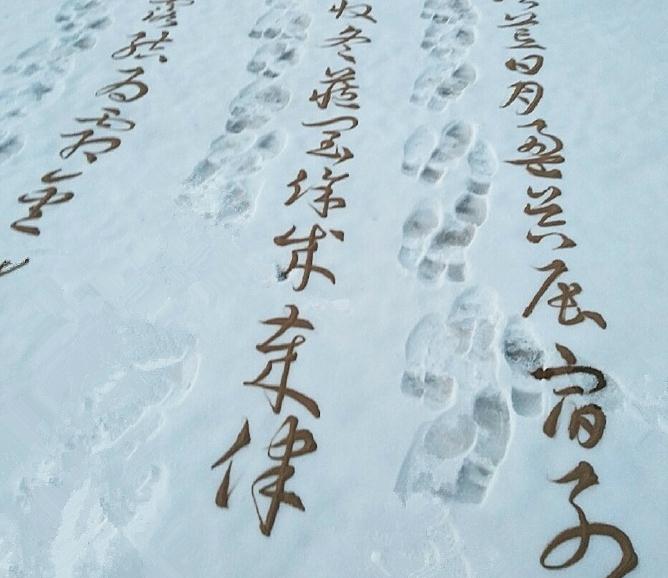 荒日月盈昃辰宿列
收冬藏閏餘成歲律
露結為霜金